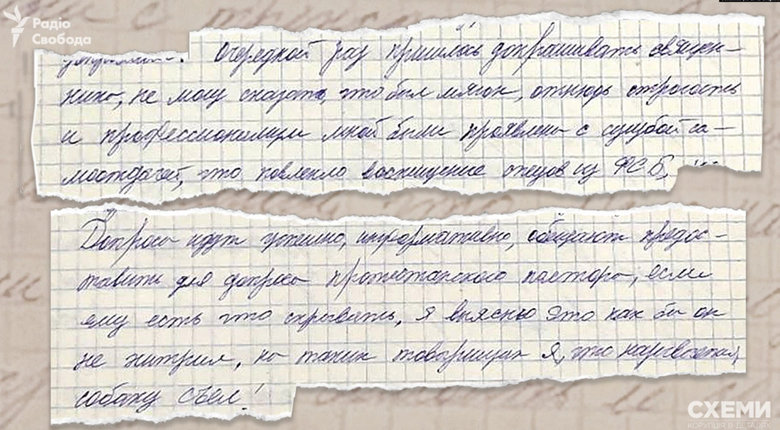 Радіо
Свобода
Очередной раз пришлось допрашивать священ-
ника, не могу сказать, что был мягок, отнюдь строгость
и профессионализм мной были проявлены с сугубой са-
моотдачей, что повлекло восхищение отцов из ФСБ,
Допросы идут успешно, информативно, обещают предос-
тавить для допроса протестанского пастора, если
ему есть что скрывать, я выясню это как бы он
не хитрил, на таких товарищах я, что называется,
собаку съел!
СХЕМИ
КОРУПЦІЯ В ДЕТАЛЯХ